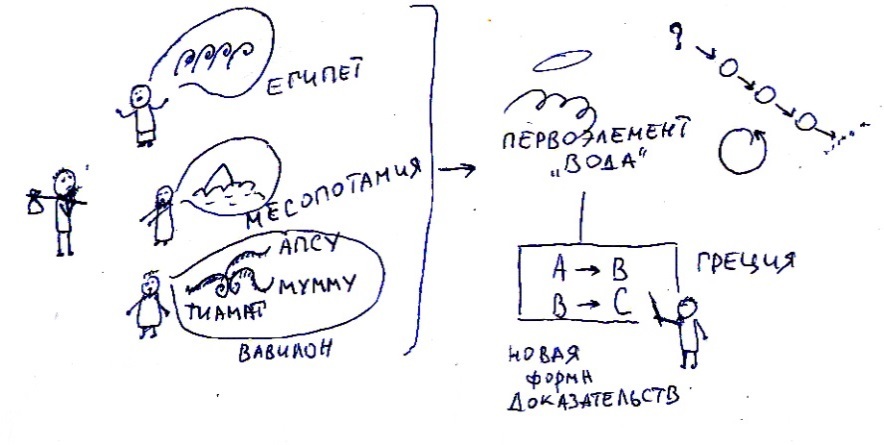 ЕГИПЕТ
?
ПЕРВОЭЛЕМЕНТ
„ВОДА“
МЕСОПОТАМИЯ
АПСУ
МУММУ
ТИАМАТ
ВАВИЛОН
A → B
B → C
ГРЕЦИЯ
НОВАЯ
ФОРМА
ДОКАЗАТЕЛЬСТВ